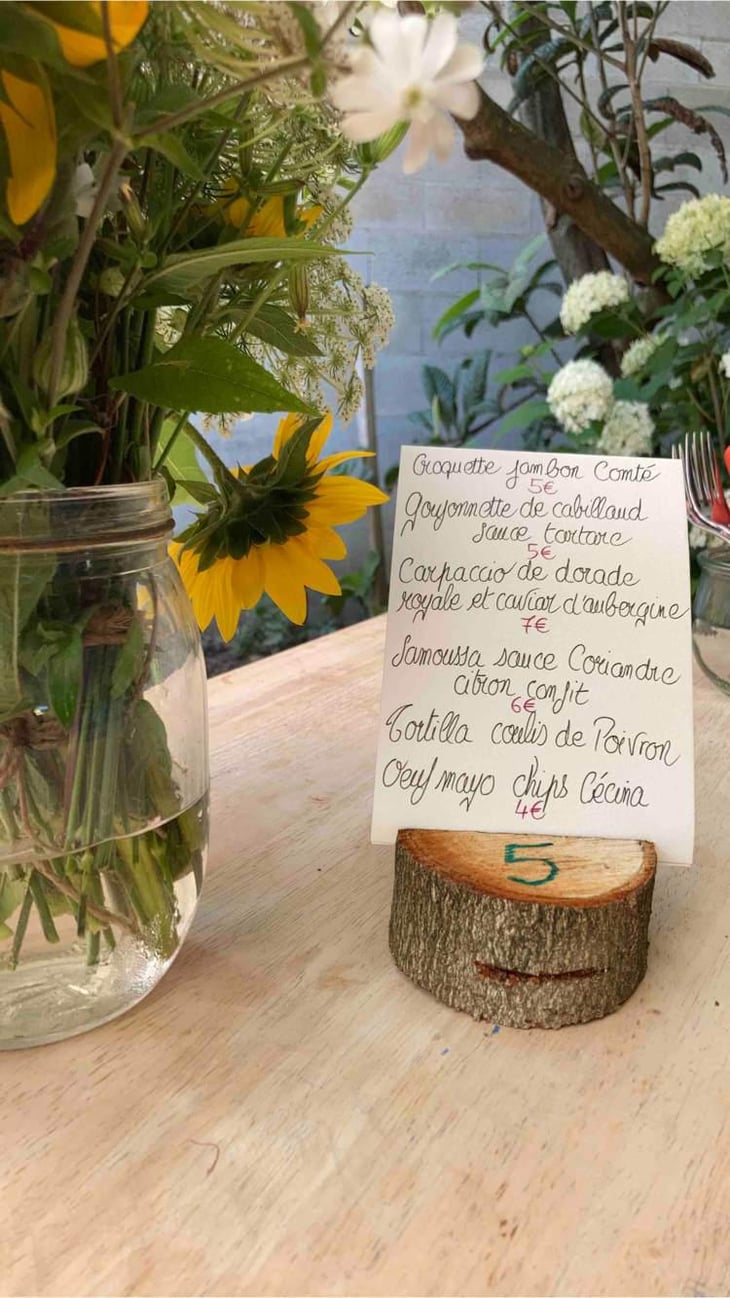 Croquette jambon Comté
5€
Goujonnette de cabillaud
sauce tartare
5€
Carpaccio de dorade
royale et caviar d'aubergine
7€
Samoussa sauce Coriandre
citron confit
6€
Tortilla coulis de Poivron
Oeuf mayo chips Cécina
4€
5